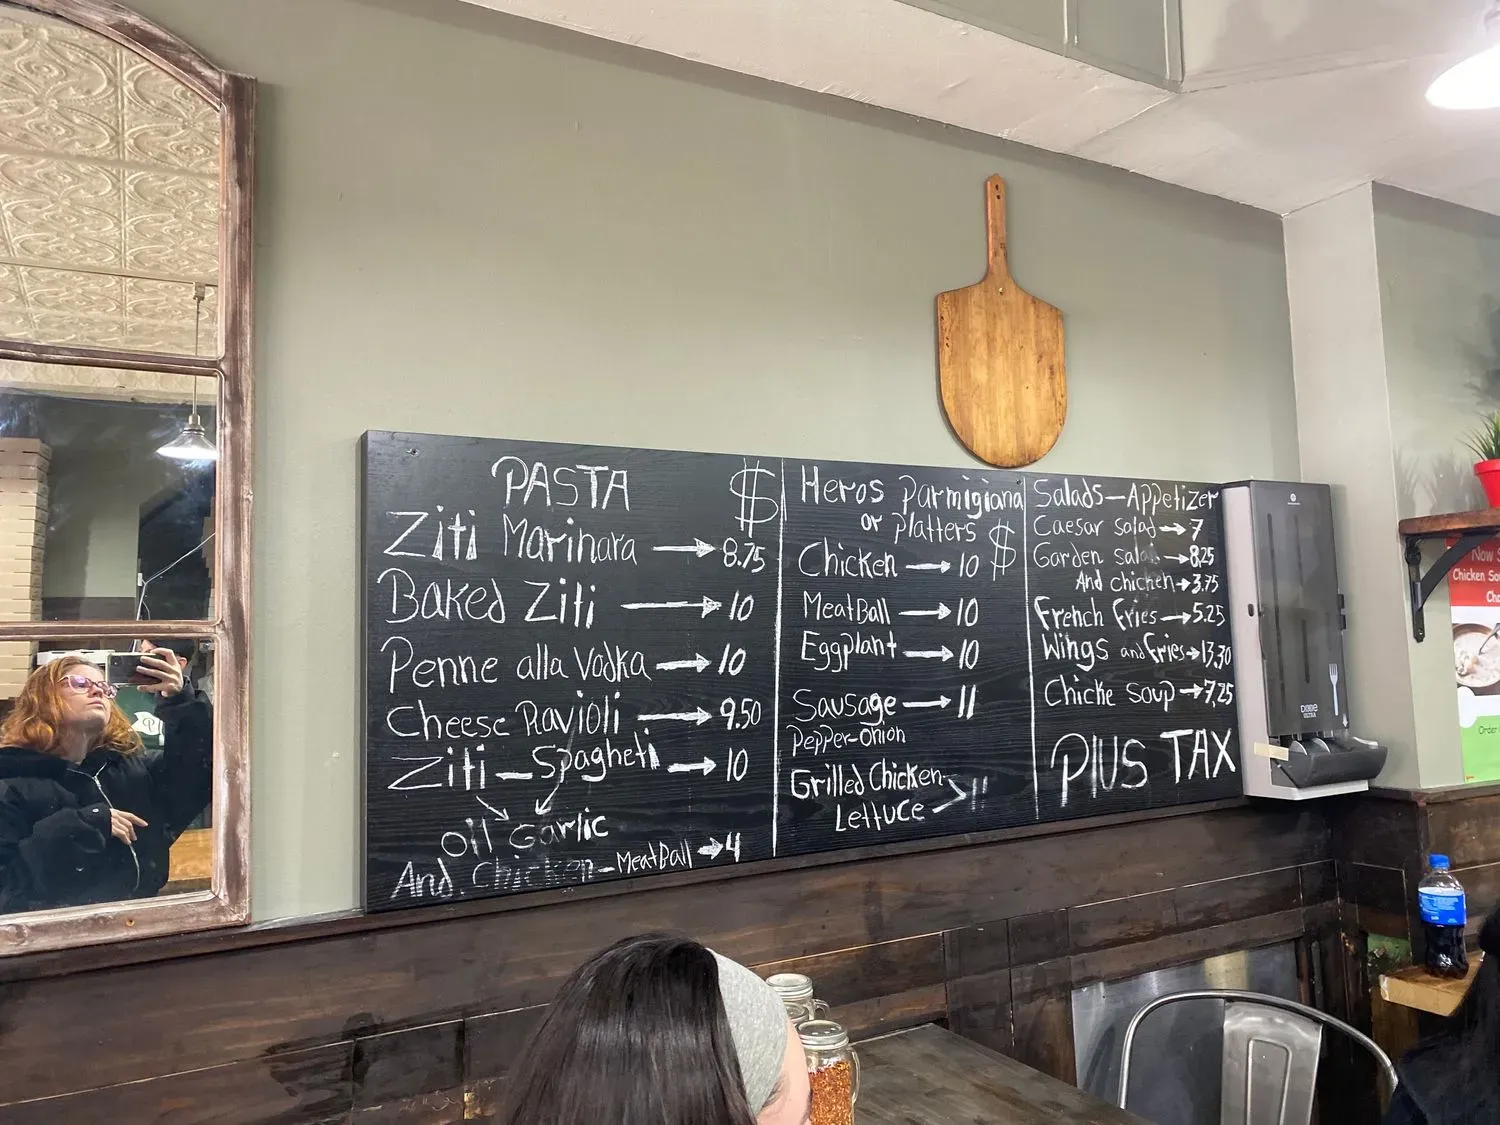 PASTA $
Ziti Marinara → 8.75
Baked Ziti → 10
Penne alla Vodka → 10
Cheese Ravioli → 9.50
Ziti - Spagheti → 10
Oil Garlic
And. Chicken - MeatBall → 4
Heros Parmigiana
or Platters $
Chicken → 10
MeatBall → 10
Eggplant → 10
Sausage → 11
Pepper-onion
Grilled Chicken
Lettuce > 11
Salads - Appetizer
Caesar salad → 7
Garden salad → 8.25
And chicken → 3.75
French Fries → 5.25
Wings and Fries → 13.30
Chicke Soup → 7.25
Plus TAX
DIXIE
ULTRA
Now
Chicken
Order